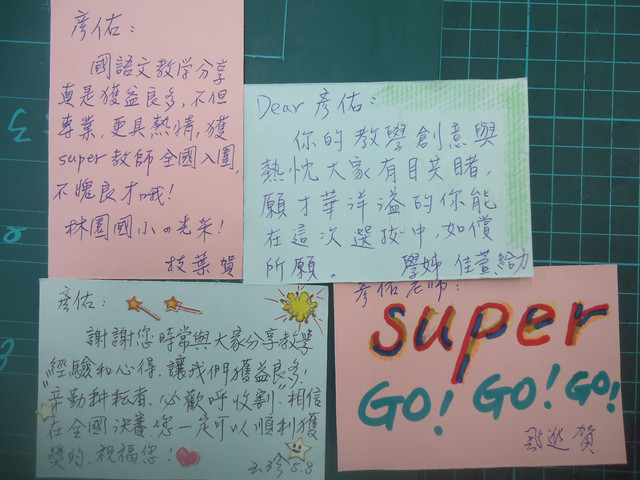 彥佑：
國語文教学分享
真是獲益良多，不但
專業，更具熱情，獲
super 教師全國入圍，
不愧良才哦！
林園國小の光采！
技葉 賀
Dear 彥佑：
你的教學創意與
熱忱大家有目共睹，
願才華洋溢的你能
在這次選拔中，如償
所願。
學姊 佳萱 給力
彥佑：
謝謝您時常與大家分享教學
經驗和心得，讓我們獲益良多，
"辛勤耕耘者，必歡呼收割"，相信
在全國決賽，您一定可以順利獲
獎的，祝福您！
5.8
彥佑老師：
super
GO! GO! GO!
賀